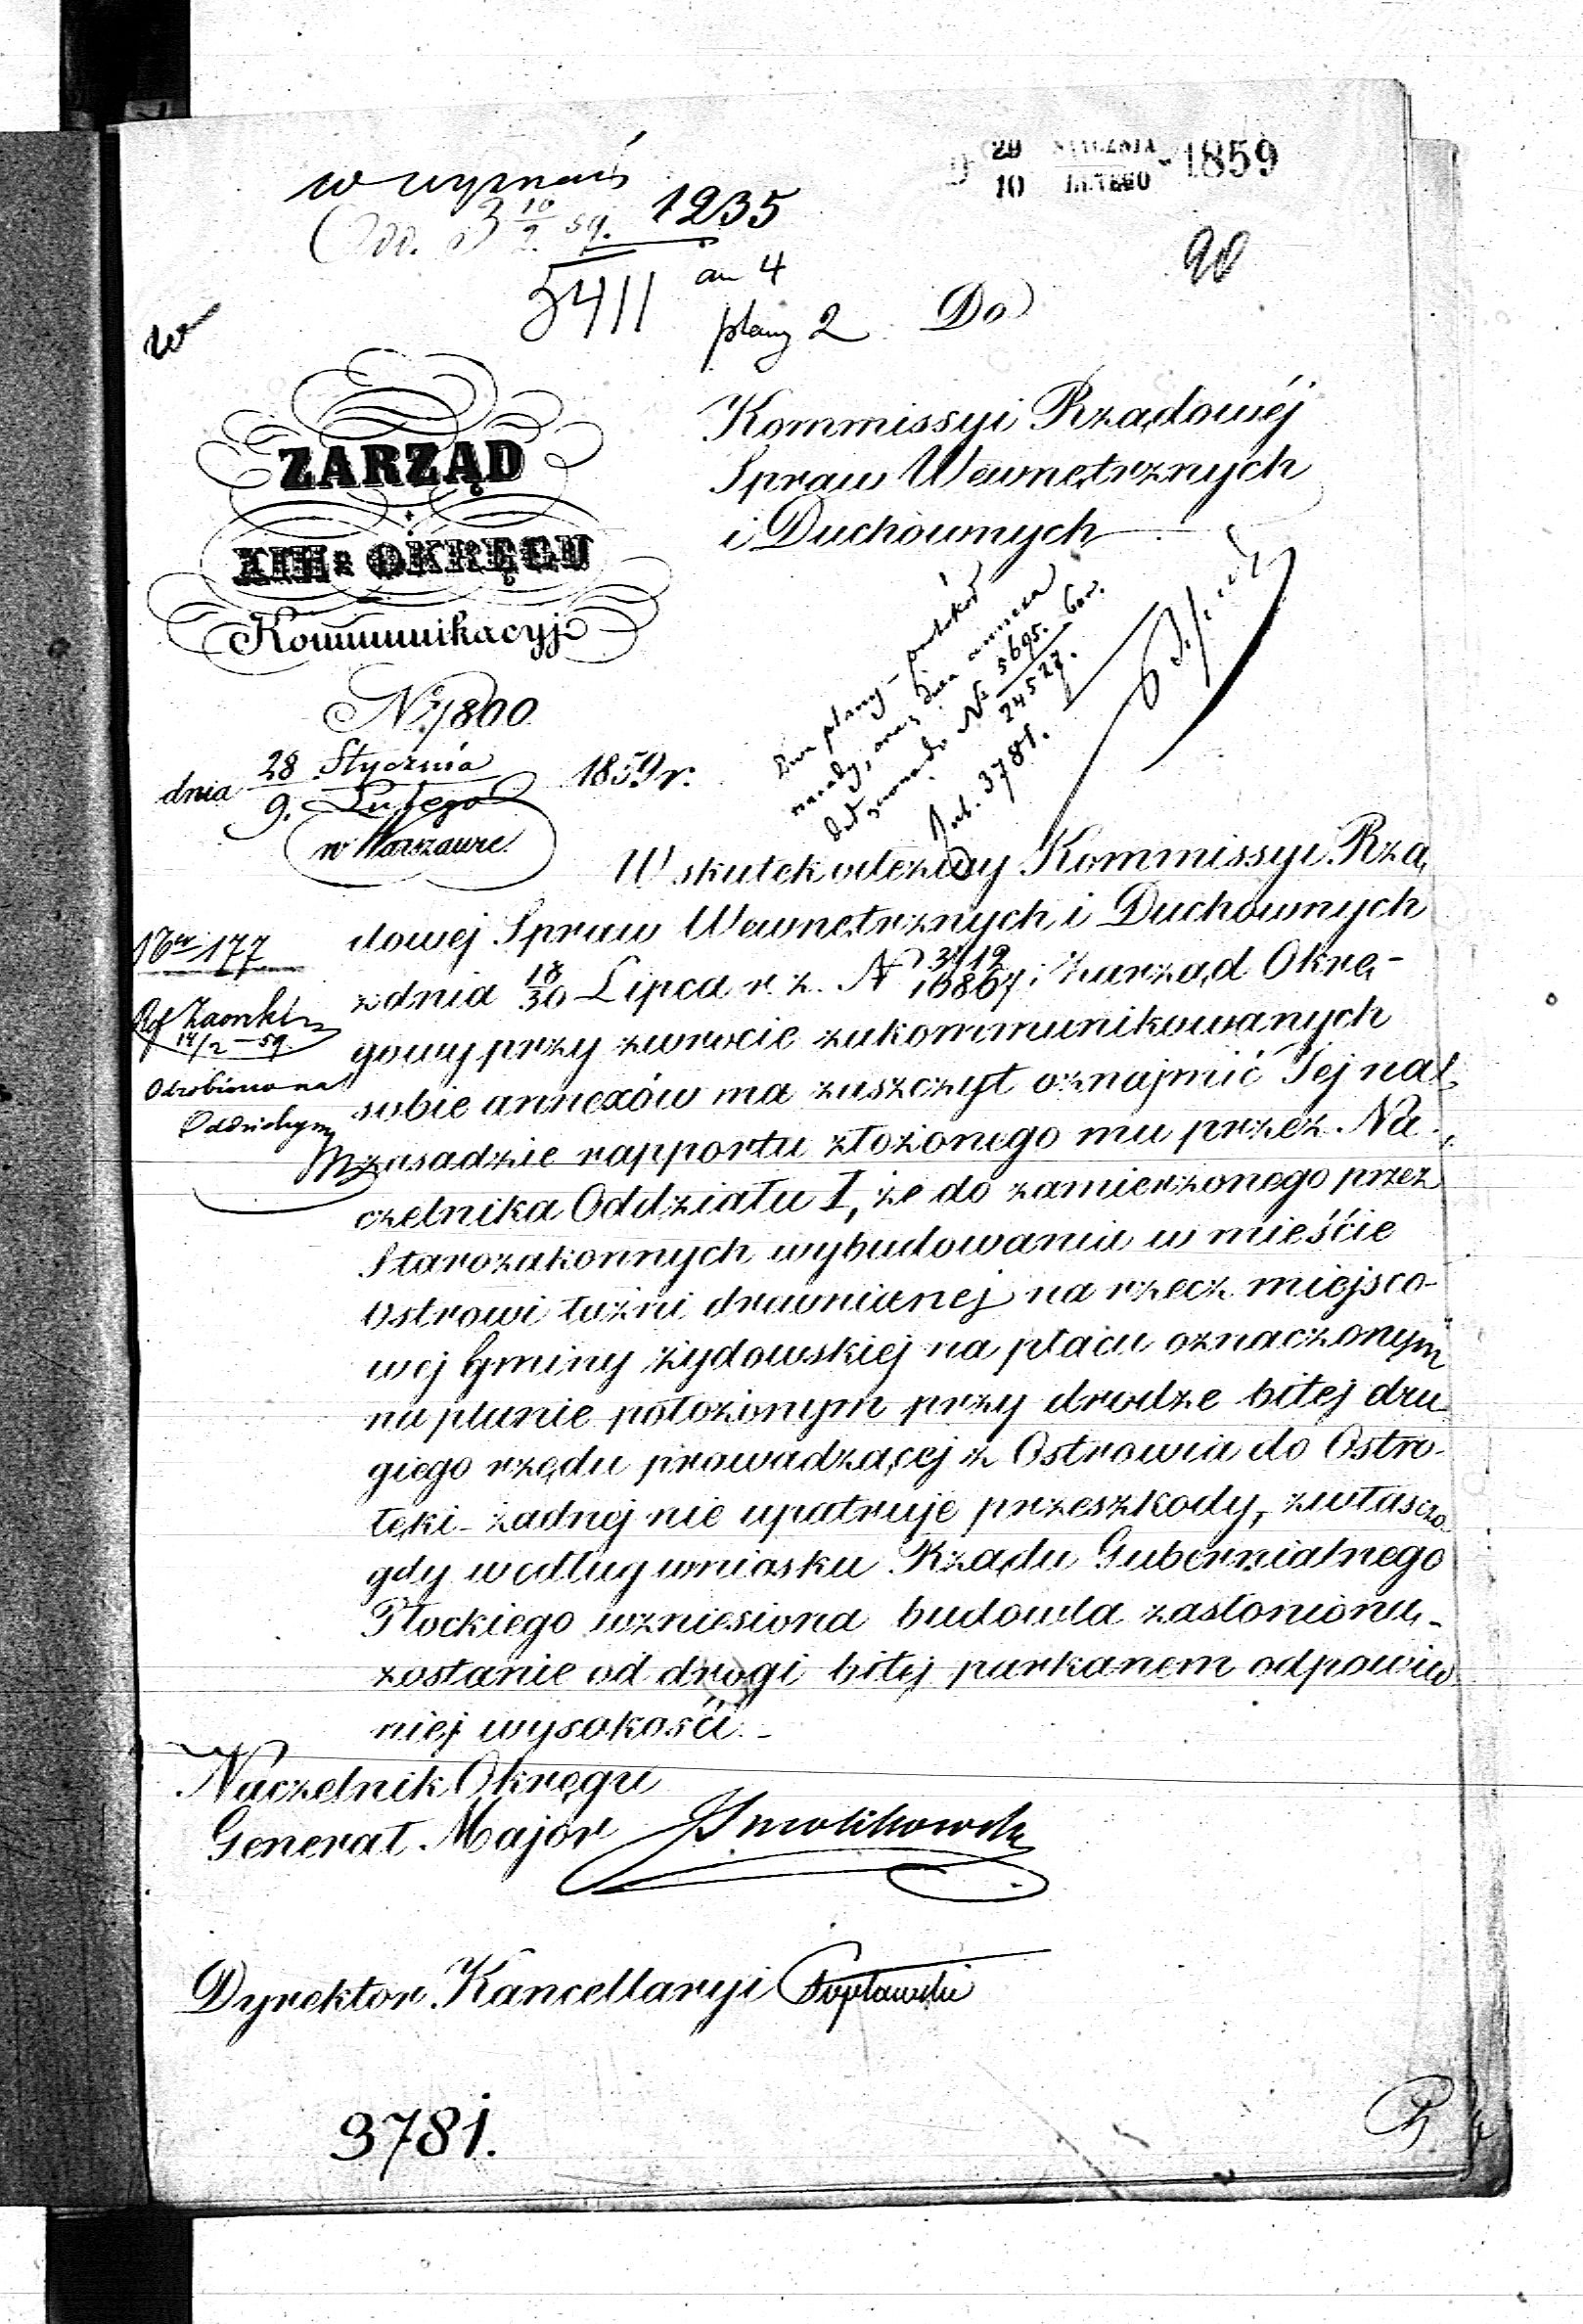 29 STYCZNIA 1859
10 LUTEGO
1235
5411
an 4
plany 2
90
Do
Kommissyi Rządowéj
Spraw Wewnętrznych
i Duchownych
ZARZĄD
XIIIgo OKRĘGU
Kommunikacyj
No 1800
dnia 28 Stycznia 1859 r.
9. Lutego
w Warszawie
Dwa plany
No 5695.
24527.
3781.
W skutek odezwy Kommissyi Rzą
dowej Spraw Wewnętrznych i Duchownych
z dnia 18/30 Lipca r. z. N 3112/10867; Zarząd Okrę-
gowy przy zwrocie zakommunikowanych
sobie annexów ma zaszczyt oznajmić Jej na
zasadzie rapportu złożonego mu przez Na
czelnika Oddziału I, że do zamierzonego przez
Starozakonnych wybudowania w mieście
Ostrowi łaźni drewnianej na rzecz miejsco-
wej Gminy żydowskiej na placu oznaczonym
na planie położonym przy drodze bitej dru
giego rzędu prowadzącej z Ostrowia do Ostro-
łęki żadnej nie upatruje przeszkody, zwłaszcza
gdy według wniosku Rządu Gubernialnego
Płockiego wzniesiona budowla zasłonioną
zostanie od drogi bitej parkanem odpowied
niej wysokości.
177
14/2 - 59.
Odrobiono na
Naczelnik Okręgu
Generał Major Smolikowski
Dyrektor Kancellaryi Popławski
3781.